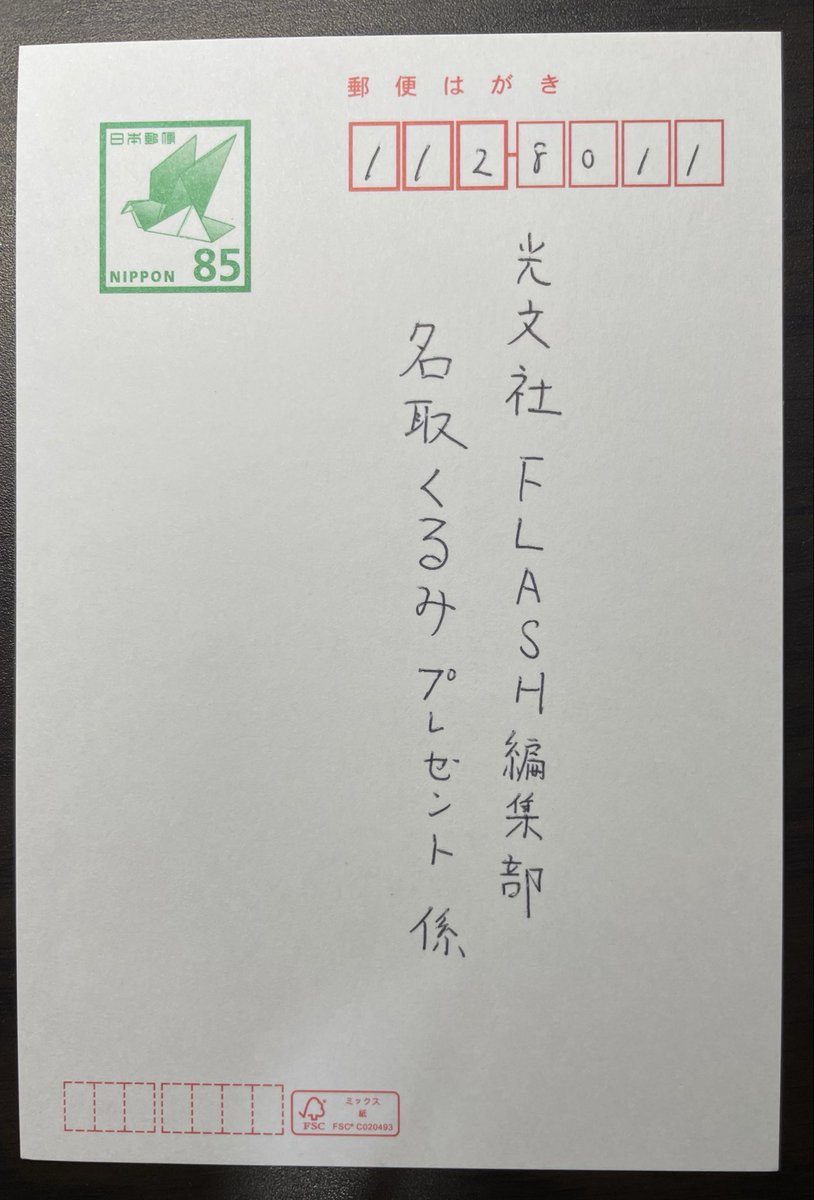 郵便はがき
日本郵便
NIPPON 85
112-8011
光文社 FLASH編集部
名取くるみ プレゼント 係
ミックス
紙
FSC
FSC® C020493